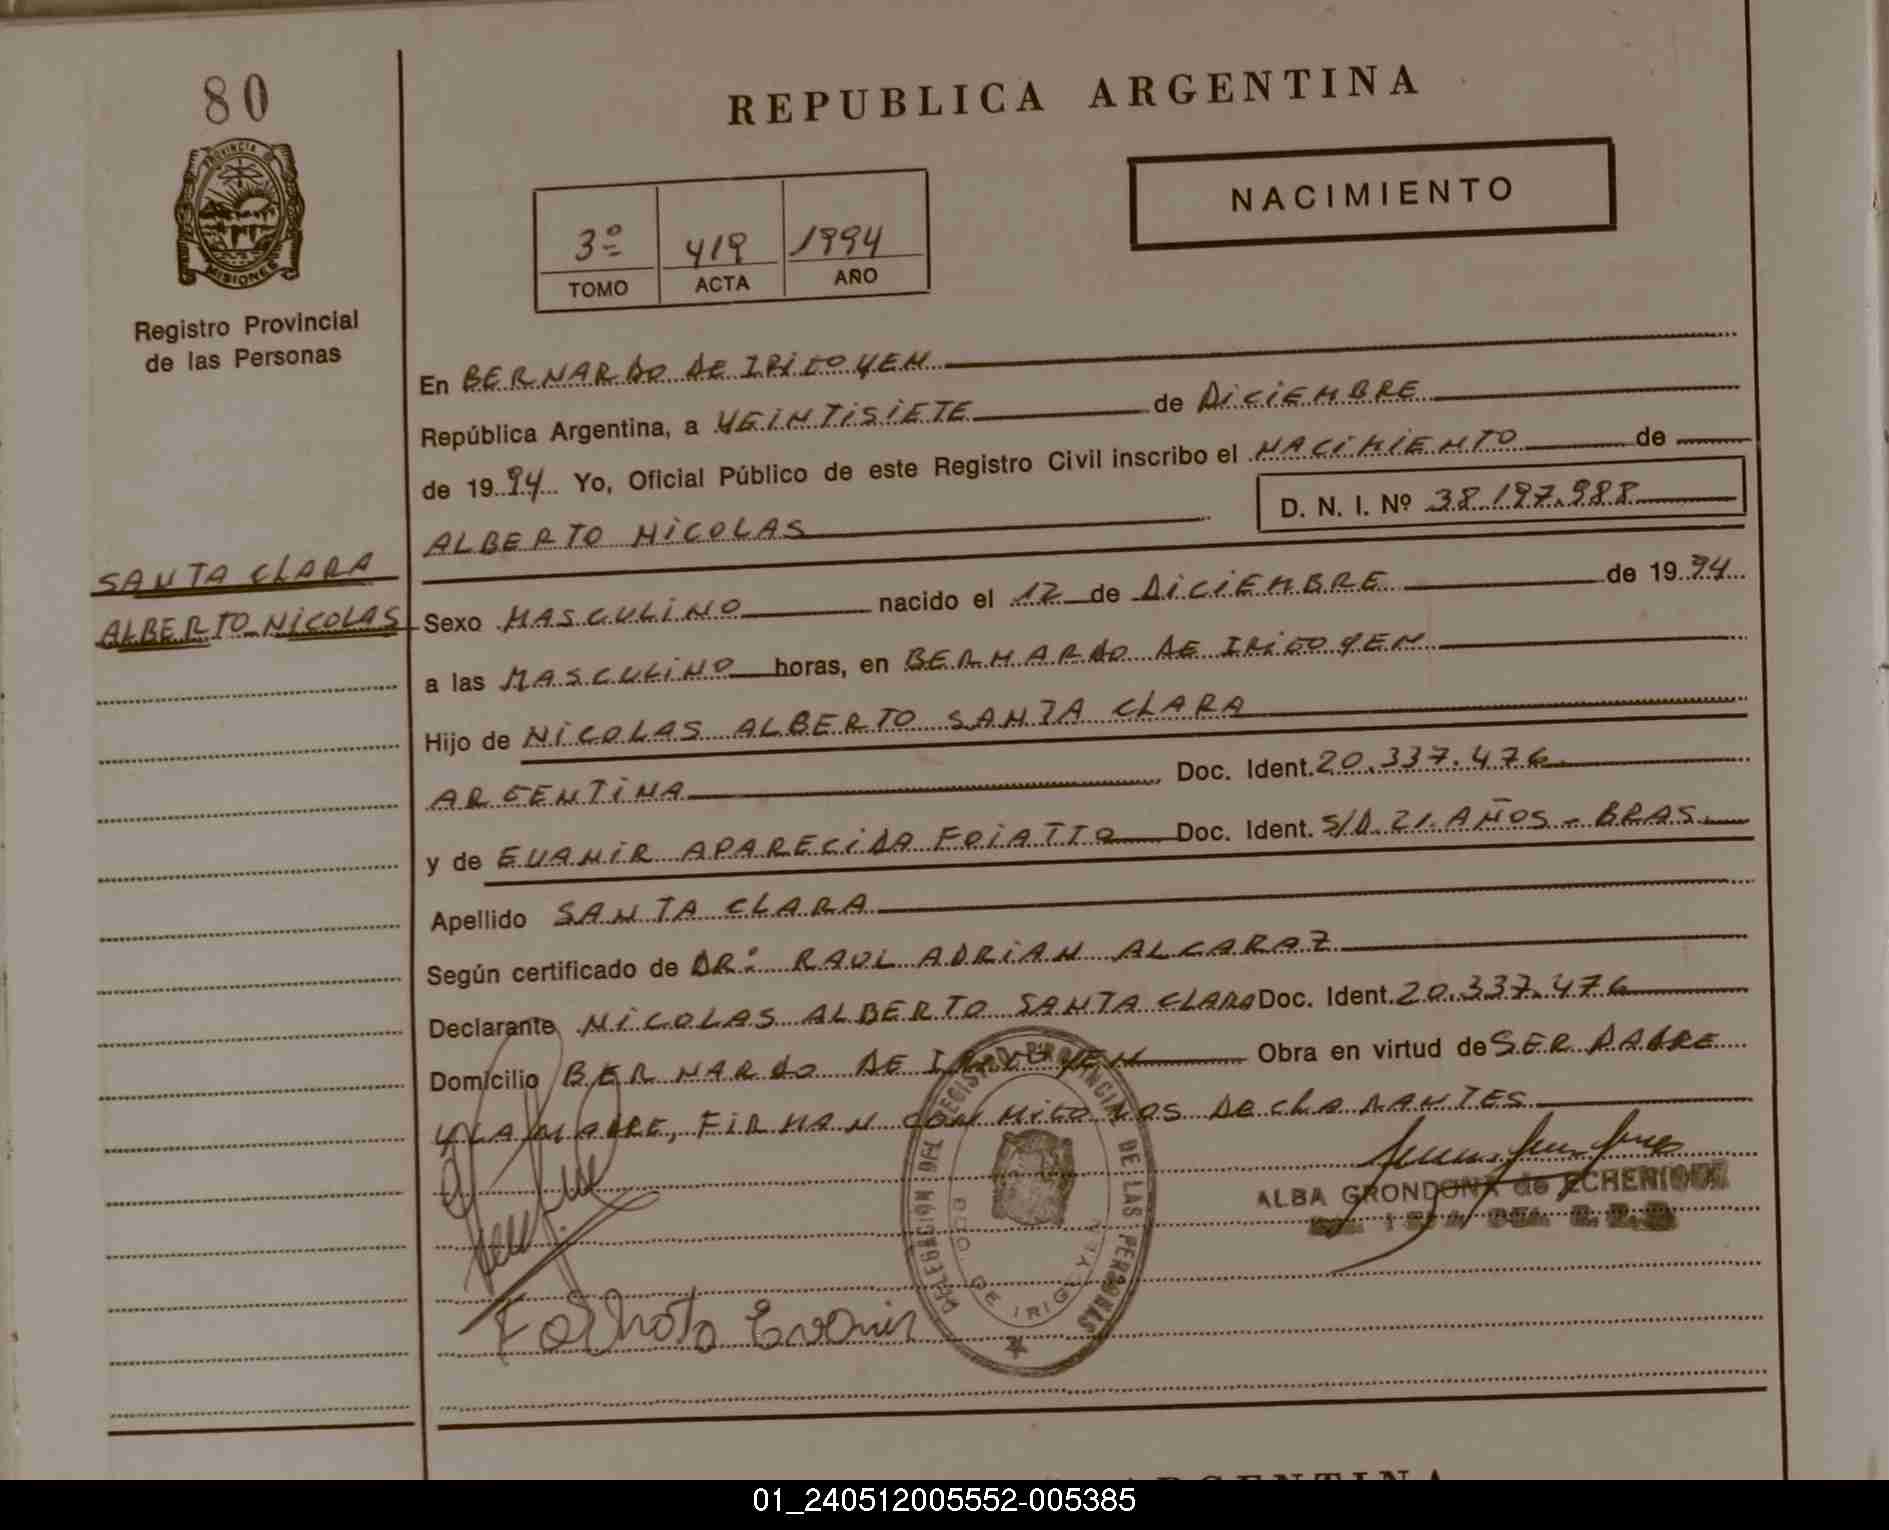 80
PROVINCIA DE
MISIONES
Registro Provincial
de las Personas
SANTA CLARA
ALBERTO NICOLAS
REPUBLICA ARGENTINA
NACIMIENTO
3º 419 1994
TOMO ACTA AÑO
En BERNARDO DE IRIGOYEN
República Argentina, a VEINTISIETE de DICIEMBRE
de 1994 Yo, Oficial Público de este Registro Civil inscribo el NACIMIENTO de
ALBERTO NICOLAS D. N. I. Nº 38.197.988
Sexo MASCULINO nacido el 12 de DICIEMBRE de 1994
a las MASCULINO horas, en BERNARDO DE IRIGOYEN
Hijo de NICOLAS ALBERTO SANTA CLARA
ARGENTINA Doc. Ident. 20.337.476
y de EVANIR APARECIDA Doc. Ident. S/D. 21. AÑOS - BRAS.
Apellido SANTA CLARA
Según certificado de DR: RAUL ADRIAN ALCARAZ
Declarante NICOLAS ALBERTO SANTA CLARA Doc. Ident. 20.337.476
Domicilio BERNARDO DE IRIGOYEN Obra en virtud de SER PADRE
Y LA MADRE, FIRMAN CONMIGO LOS DECLARANTES
DELEGACION DEL REGISTRO PROVINCIAL DE LAS PERSONAS
BDO. DE IRIGOYEN
ALBA GRONDONA de ECHENIQUE
Evanir
ARGENTINA
01_240512005552-005385